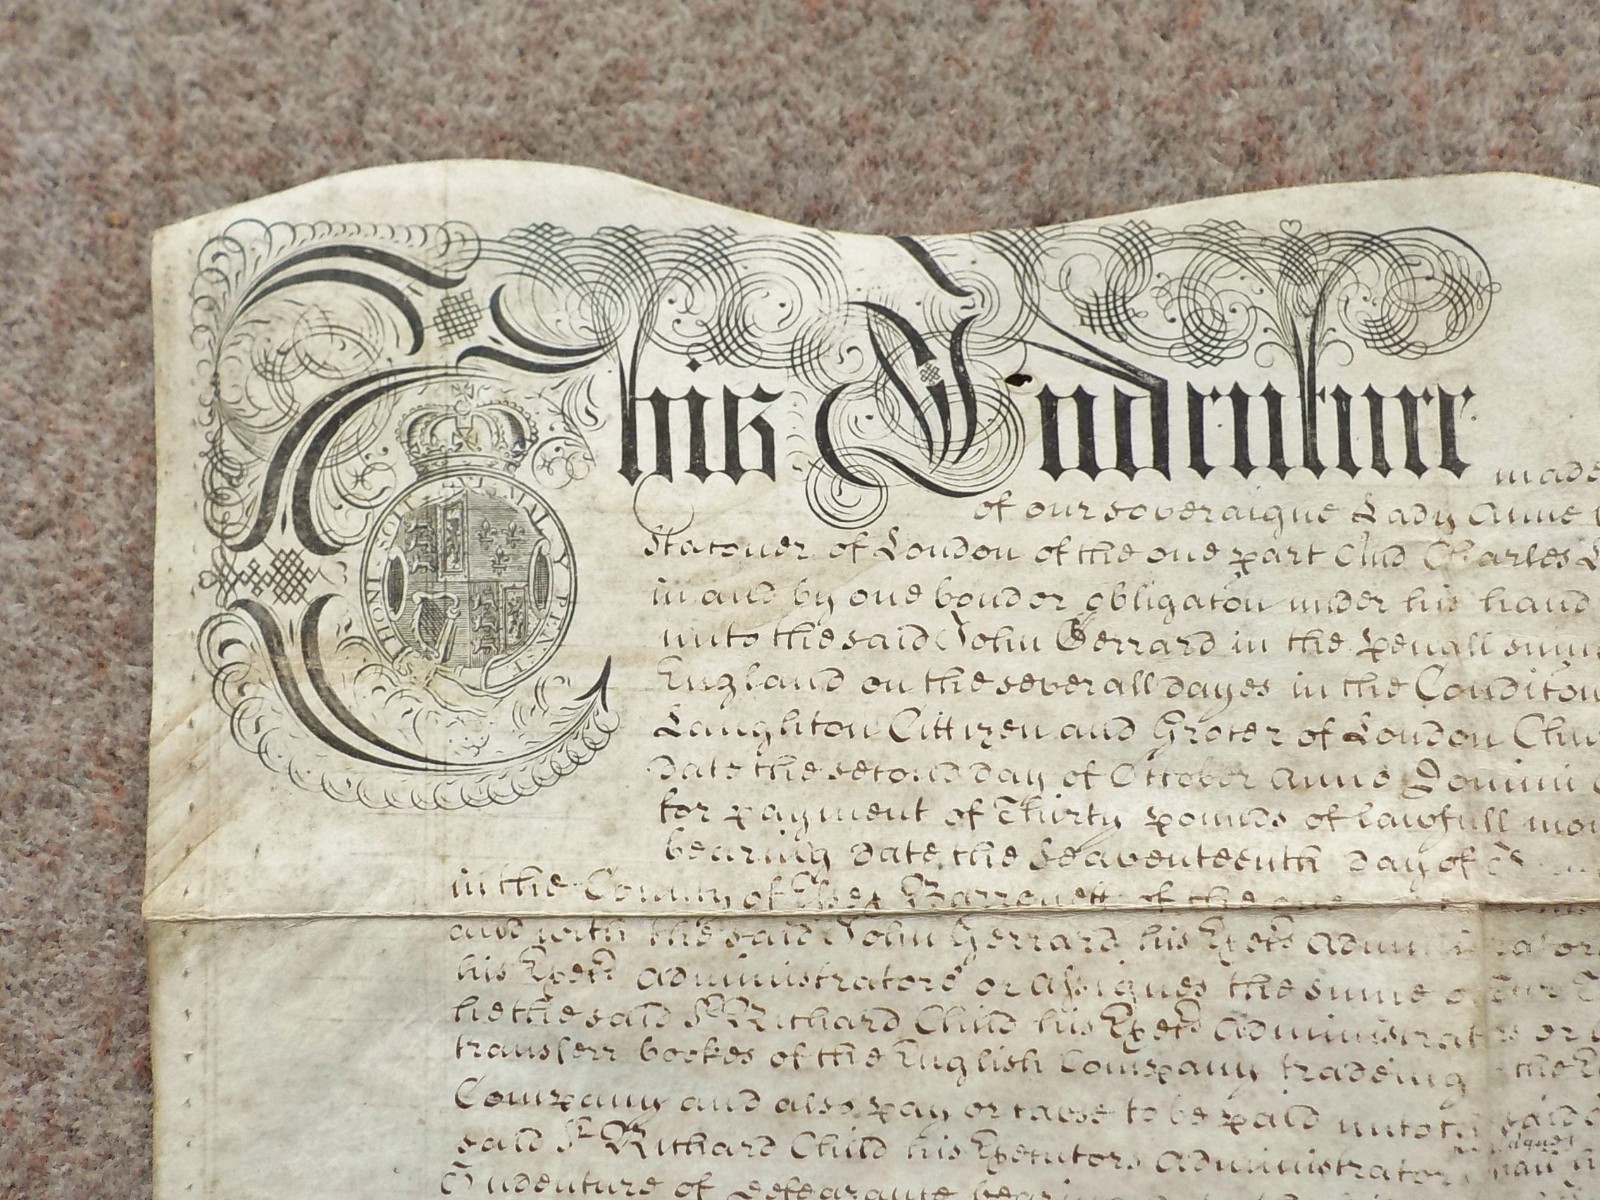 This Indenture made
of our soveraigne Lady Anne
Stacouer of London of the one part And Charles
in and by one bond or obligacon under his hand
unto the said John Gerrard in the penall summ
England on the severall dayes in the Conditon
Laughton Cittizen and Grocer of London
Date the second Day of October Anno Domini
for payment of Thirty pounds of lawfull mon
bearing Date the Seaventeenth Day of
in the County of Essex Barronett of the one
and with the said John Gerrard his Exers Administrators
his Exers Administrators or Assignes the summe of
he the said Sr Richard Child his Exers Administrators or
transferr bookes of the English Company trading the
Company and also pay or cause to be paid unto the said
said Sr Richard Child his Executors Administrators
Indenture of Defeazance bearing
HONI SOIT MAL Y PENS